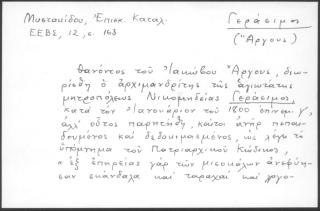 Μυστακίδου, Ἐπισκ. Καταλ.
ΕΕΒΣ, 12, σ. 163
Γεράσιμος
(Ἄργους)
θανόντος τοῦ Ἰακώβου Ἄργους, διω-
ρίσθη ὁ ἀρχιμανδρίτης τῆς ἁγιωτάτης
μητροπόλεως Νικομηδείας Γεράσιμος
κατὰ τὸν Ἰανουάριον τοῦ 1800 ἐπινεμ. γ',
ἀλλ' οὗτος παρητήθη, καίτοι ἀνὴρ πεπαι-
δευμένος καὶ δεδοκιμασμένος, ὡς λέγει τὸ
ὑπόμνημα τοῦ Πατριαρχικοῦ Κώδικος,
« ἐξ ἐπηρείας γὰρ τῶν μισοκάλων ἀνεφύη-
σαν σκάνδαλα καὶ ταραχαὶ καὶ λογο-